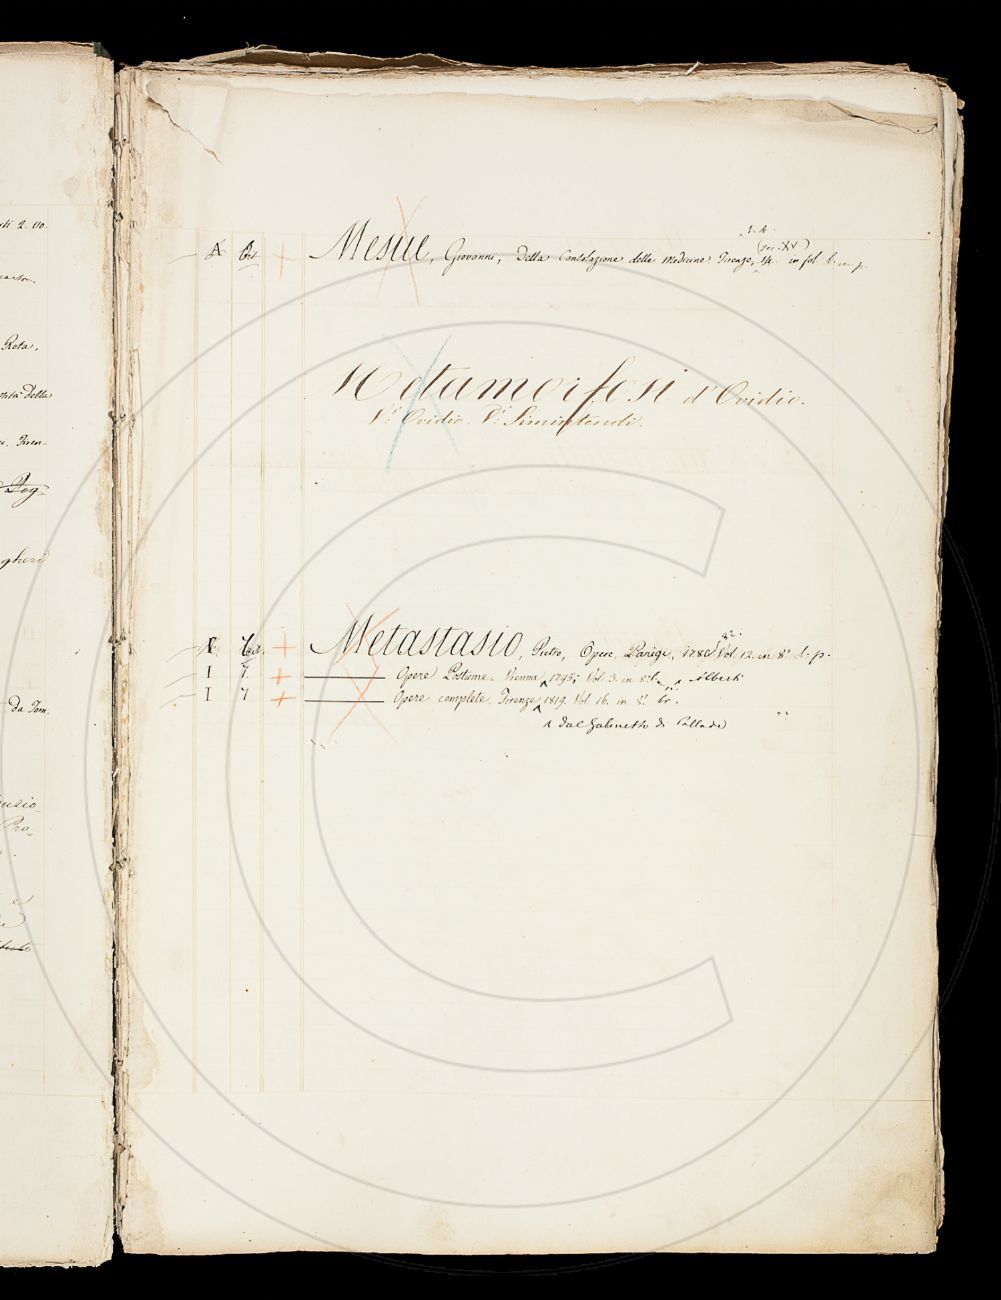 rti 2. vo.
carton.
Rota.
della
ci. Firen-
Pog-
gheri
da Tom-
Pro-
s. a.
(sec. XV)
X Cit. + Mesue, Giovanni, Della Consolazione delle Medicine. Firenze, in fol. l. p.
Metamorfosi d'Ovidio.
V. Ovidio. V. Simintendi.
82.
X Cit. + Metastasio, Pietro, Opere, Parigi, 1780 Vol. 12. in 8° l. p.
I 7. + ——— Opere Postume. Vienna 1795; Vol. 3. in 8° ‸ Alberti
I 7 + ——— Opere complete. Firenze ‸ 1819. Vol. 16. in 8° br.
‸ dal Gabinetto di Pallade